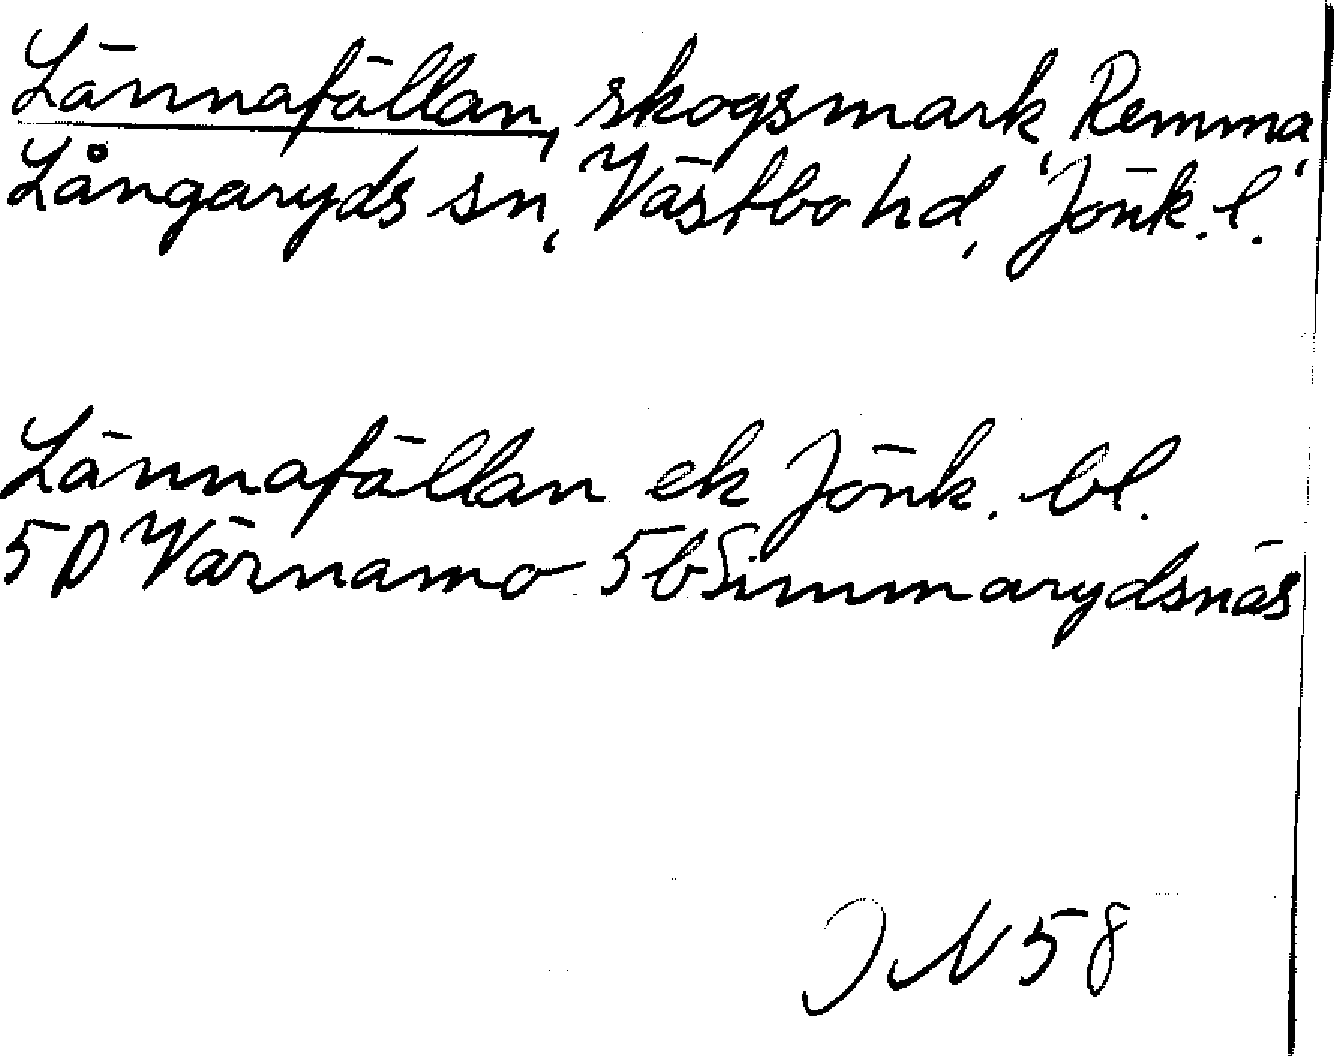 Lännafällan, skogsmark, Remma,
Långaryds sn, Västbo hd, Jönk. l.
Lännafällan ek Jönk. bl.
5D Värnamo 5b Simmarydsnäs
JN 58